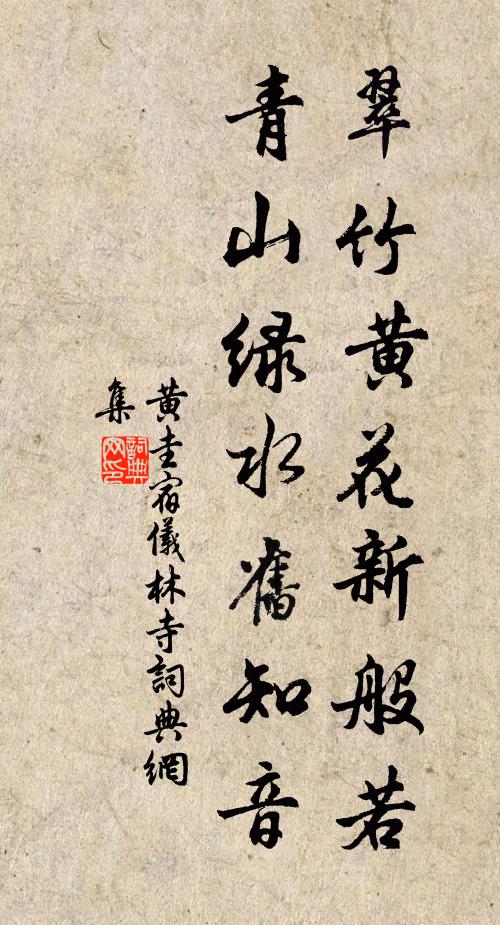 翠竹黄花新般若
青山绿水舊知音
黄圭宿儀林寺詞典網
集
詞典網印